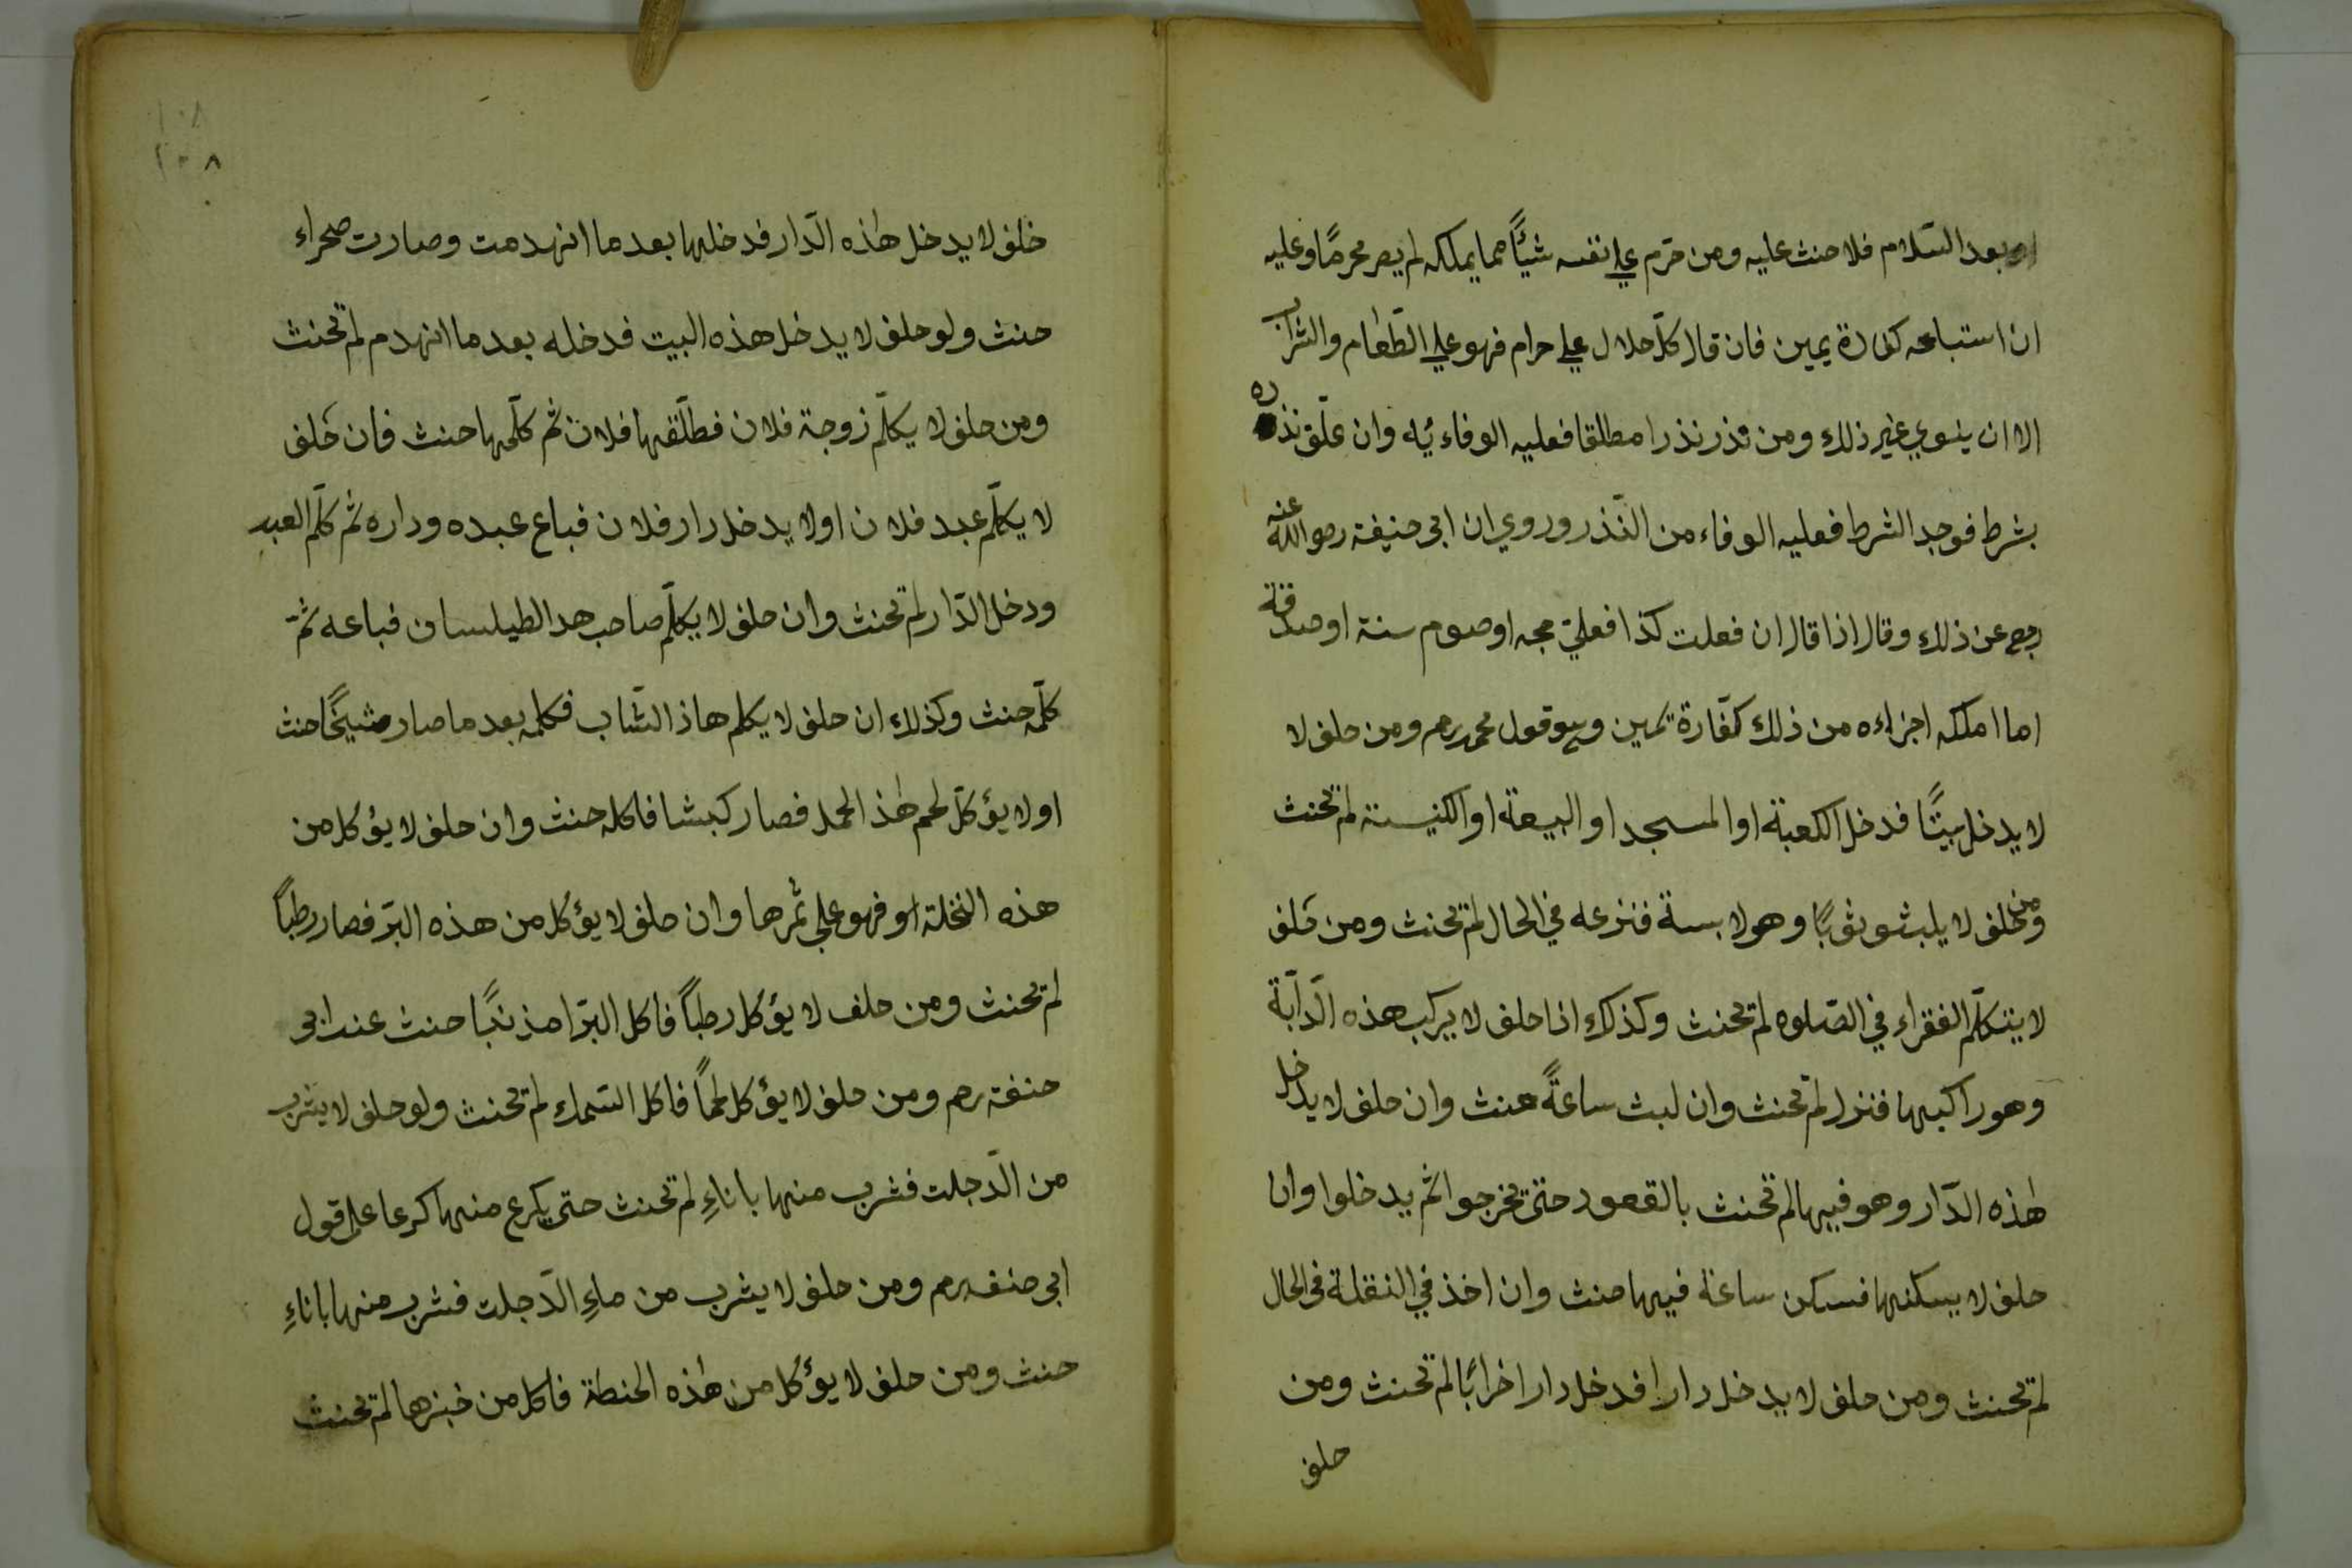 او بعد السّلام فلا حنث عليه ومن حرّم علي نفسه شيئًا مما يملكه لم يصر محرمًا وعليه
ان استباحه كفارة يمين فان قال كلّ حلال علي حرام فهو علي الطّعام والشراب
الا ان ينوي غير ذلك ومن نذر نذرا مطلقا فعليه الوفاء به وان علّق نذره
بشرط فوجد الشرط فعليه الوفاء من النّذر وروي ان ابى حنيفة رضو الله عنه
رجع عن ذلك وقال اذا قال ان فعلت كذا فعليّ حجه او صوم سنة او صدقة
اما املكه اجزاءه من ذلك كفّارة يمين وهو قول محمد رحم ومن حلف لا
لا يدخل بيتًا فدخل الكعبة او المسجد او البيعة او الكنيسة لم تحنث
ومن حلف لا يلبث ثوبًا وهو لابسة فنزعه في الحال لم تحنث ومن حَلف
لا يتكلّم الفقراء في الصّلوه لم تحنث وكذلك اذا حلف لا يركب هذه الدّابّة
وهو راكبها فنزل لم تحنث وان لبث ساعةً حنث وان حلف لا يدخل
هٰذه الدّار وهو فيها لم تحنث بالقعود حتى تخرجوا ثم يدخلوا وان
حلف لا يسكنها فسكن ساعة فيها حنث وان اخذ في النقلة في الحال
لم تحنث ومن حلف لا يدخل دارا فدخل دارا خرابًا لم تحنث ومن
حلف
١٠٨
١٠٨
خلف لا يدخل هٰذه الدّار فدخلها بعد ما انهدمت وصارت صحراء
حنث ولو حلف لا يدخل هذه البيت فدخله بعد ما انهدم لم تحنث
ومن حلف لا يكلّم زوجة فلان فطلّقها فلان ثم كلّمها حنث فان حَلف
لا يكلّم عبد فلان اولا يدخل دار فلان فباع عبده وداره ثم كلّم العبد
ودخل الدّار لم تحنث وان حلف لا يكلّم صاحب هد الطيلسان فباعه ثمّ
كلّمه حنث وكذلك ان حلف لا يكلم هاذ الشّاب فكلمه بعد ما صار شيخًا حنث
اولا يؤكلّ لحم هٰذ الحمل فصار كبشا فاكله حنث وان حلف لا يؤكل من
هذه النخلة او فهو علي ثمرها وان حلف لا يؤكل من هذه البرّ فصار رطباً
لم تحنث ومن حلف لا يؤكل رطباً فاكل البرّا مذنبًا حنث عند ابى
حنفة رحم ومن حلف لا يؤكل لحماً فاكل السّمك لم تحنث ولو حلف لا يشرب
من الدّجلت فشرب منها باناءٍ لم تحنث حتى يكرع منها كرعا على قول
ابى حنفه رحم ومن حلف لا يشرب من ماءِ الدّجلت فشرب منها باناءٍ
حنث ومن حلف لا يؤكل من هٰذه الحنطة فاكل من خبزها لم تحنث